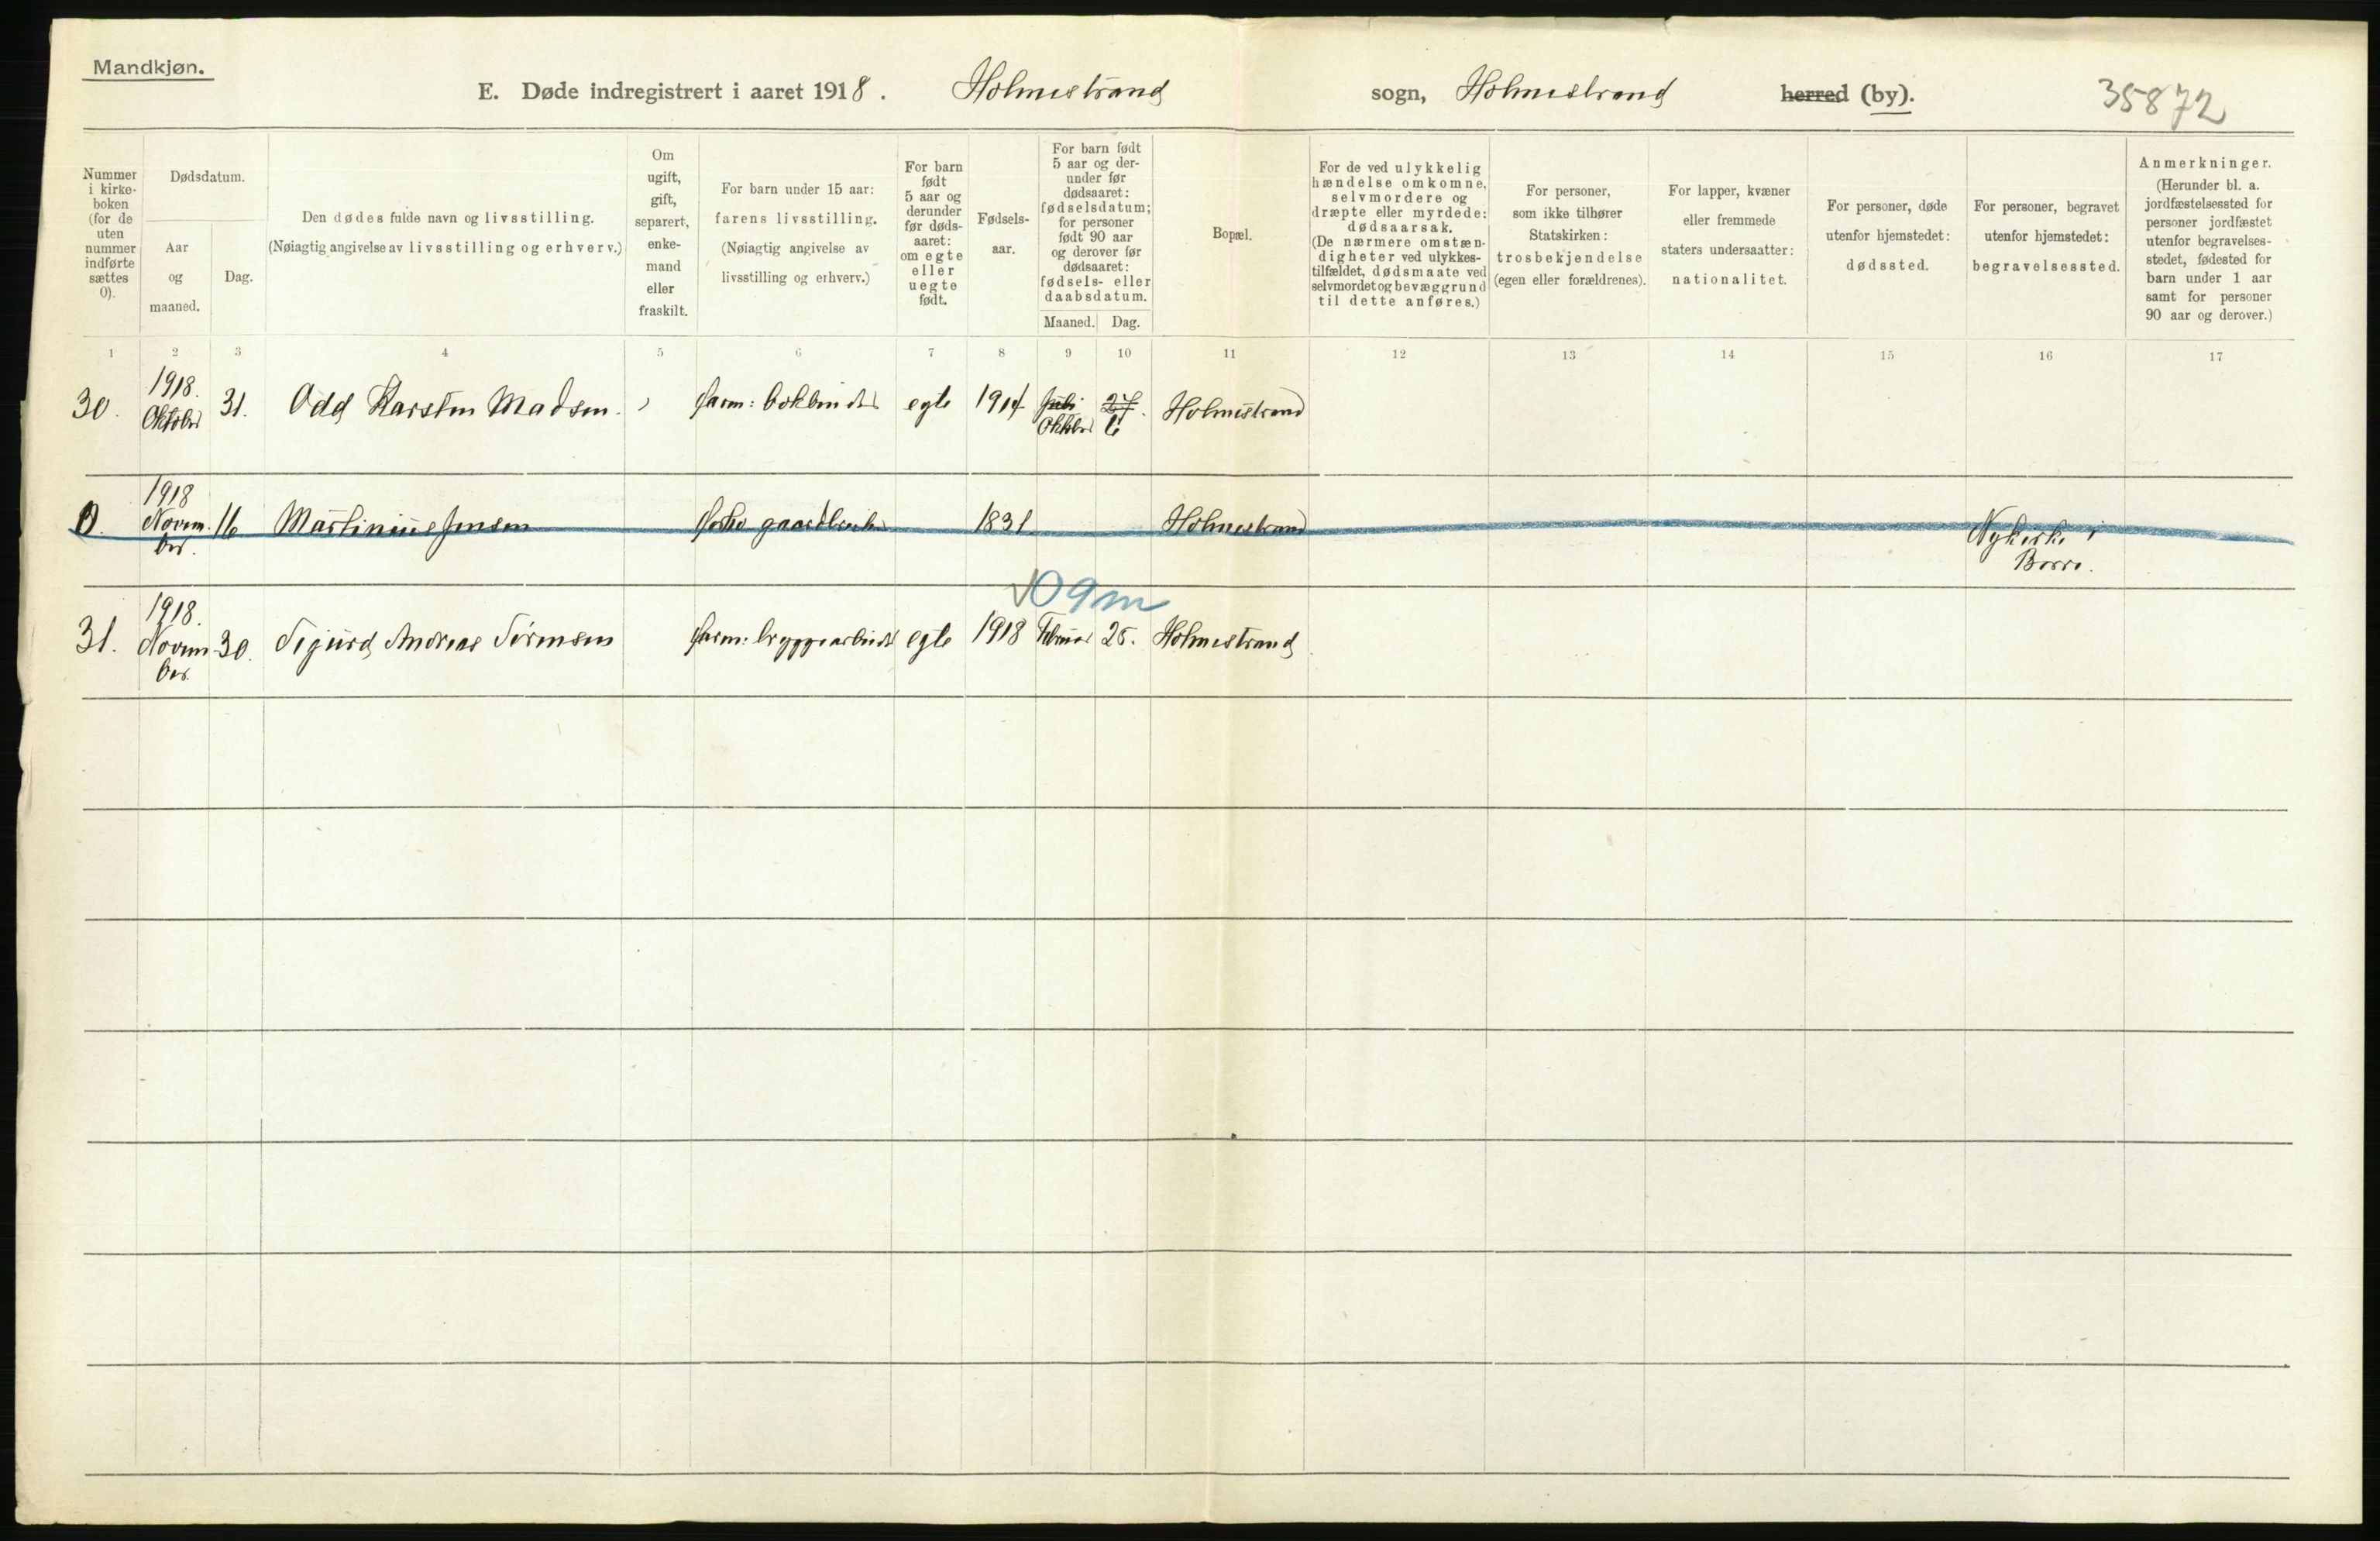 Mandkjøn.
E. Døde indregistrert i aaret 1918. Holmestrand sogn, Holmestrand herred (by). 35872
Nummer
i kirke-
boken
(for de
uten
nummer
indførte
sættes
0).
Dødsdatum.
Aar
og
maaned.
Dag.
Den dødes fulde navn og livsstilling.
(Nøiagtig angivelse av livsstilling og erhverv.)
Om
ugift,
gift,
separert,
enke-
mand
eller
fraskilt.
For barn under 15 aar:
farens livsstilling.
(Nøiagtig angivelse av
livsstilling og erhverv.)
For barn
født
5 aar og
derunder
før døds-
aaret:
om egte
eller
uegte
født.
Fødsels-
aar.
For barn født
5 aar og der-
under før
dødsaaret:
fødselsdatum;
for personer
født 90 aar
og derover før
dødsaaret:
fødsels- eller
daabsdatum.
Maaned. Dag.
Bopæl.
For de ved ulykkelig
hændelse omkomne,
selvmordere og
dræpte eller myrdede:
dødsaarsak.
(De nærmere omstæn-
digheter ved ulykkes-
tilfældet, dødsmaate ved
selvmordet og bevæggrund
til dette anføres.)
For personer,
som ikke tilhører
Statskirken:
trosbekjendelse
(egen eller forældrenes).
For lapper, kvæner
eller fremmede
staters undersaatter:
nationalitet.
For personer, døde
utenfor hjemstedet:
dødssted.
For personer, begravet
utenfor hjemstedet:
begravelsessted.
Anmerkninger.
(Herunder bl. a.
jordfæstelsessted for
personer jordfæstet
utenfor begravelses-
stedet, fødested for
barn under 1 aar
samt for personer
90 aar og derover.)
1 2 3 4 5 6 7 8 9 10 11 12 13 14 15 16 17
1918.
30. Oktober 31. Odd Karsten Madsen. farm: bokbinder egte 1914 Juli 27. Holmestrand
Oktober 6
1918
0. Novem- 16 Martinius Jensen gaardbruker 1831 Holmestrand Nykirke i
ber. Borre.
09m
1918.
31. Novem- 30. Sigurd Andreas Sørensen farm: bryggearbeider egte 1918 Februar 25. Holmestrand
ber.